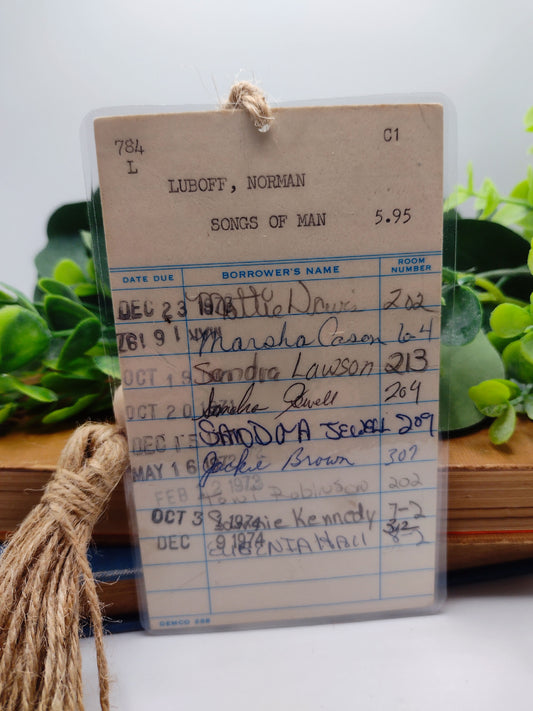 784 C1
L
LUBOFF, NORMAN
SONGS OF MAN 5.95
DATE DUE BORROWER'S NAME ROOM NUMBER
DEC 23 Mattie Davis 202
Marsha Cason 6-4
OCT 19 Sandra Lawson 213
OCT 20 Sandra Jewell 209
DEC 15 SANDDRA JEWELL 209
MAY 16 Jackie Brown 307
FEB 1973 202
OCT 3 1974 Kennedy 7-2
DEC 9 1974 HALL 8-2
DEMCO